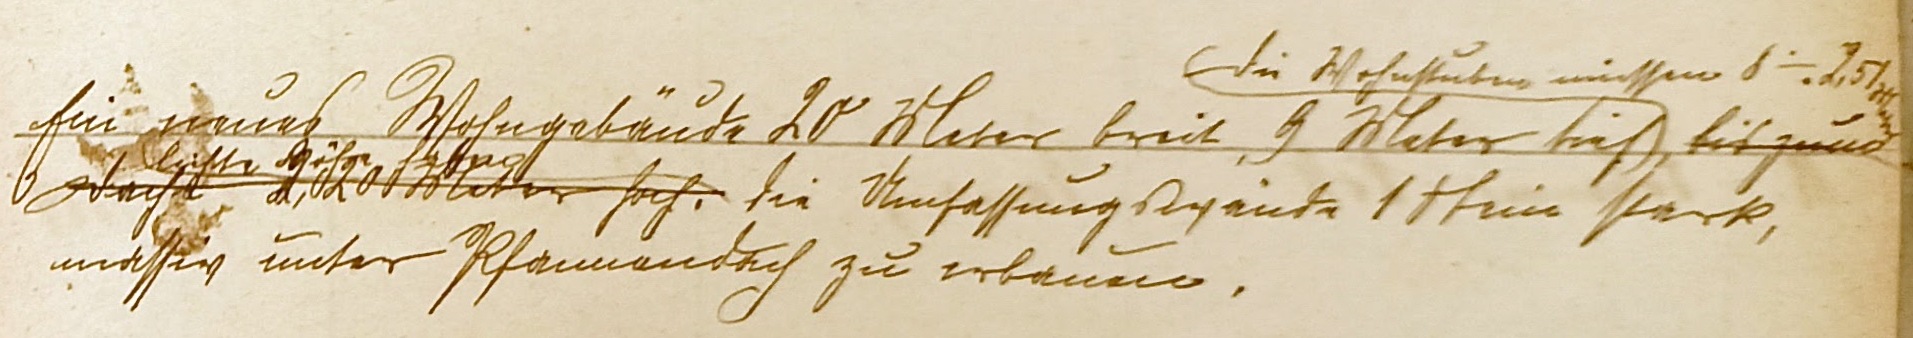 die Wohnstuben müssen 2,5
Ein neues Wohngebäude 20 Meter breit, 9 Meter tief, bis zum
lichte Höhe haben
Dach 2,20 Meter hoch. die Umfassungswände 1 Stein stark,
massiv unter Pfannendach zu erbauen.